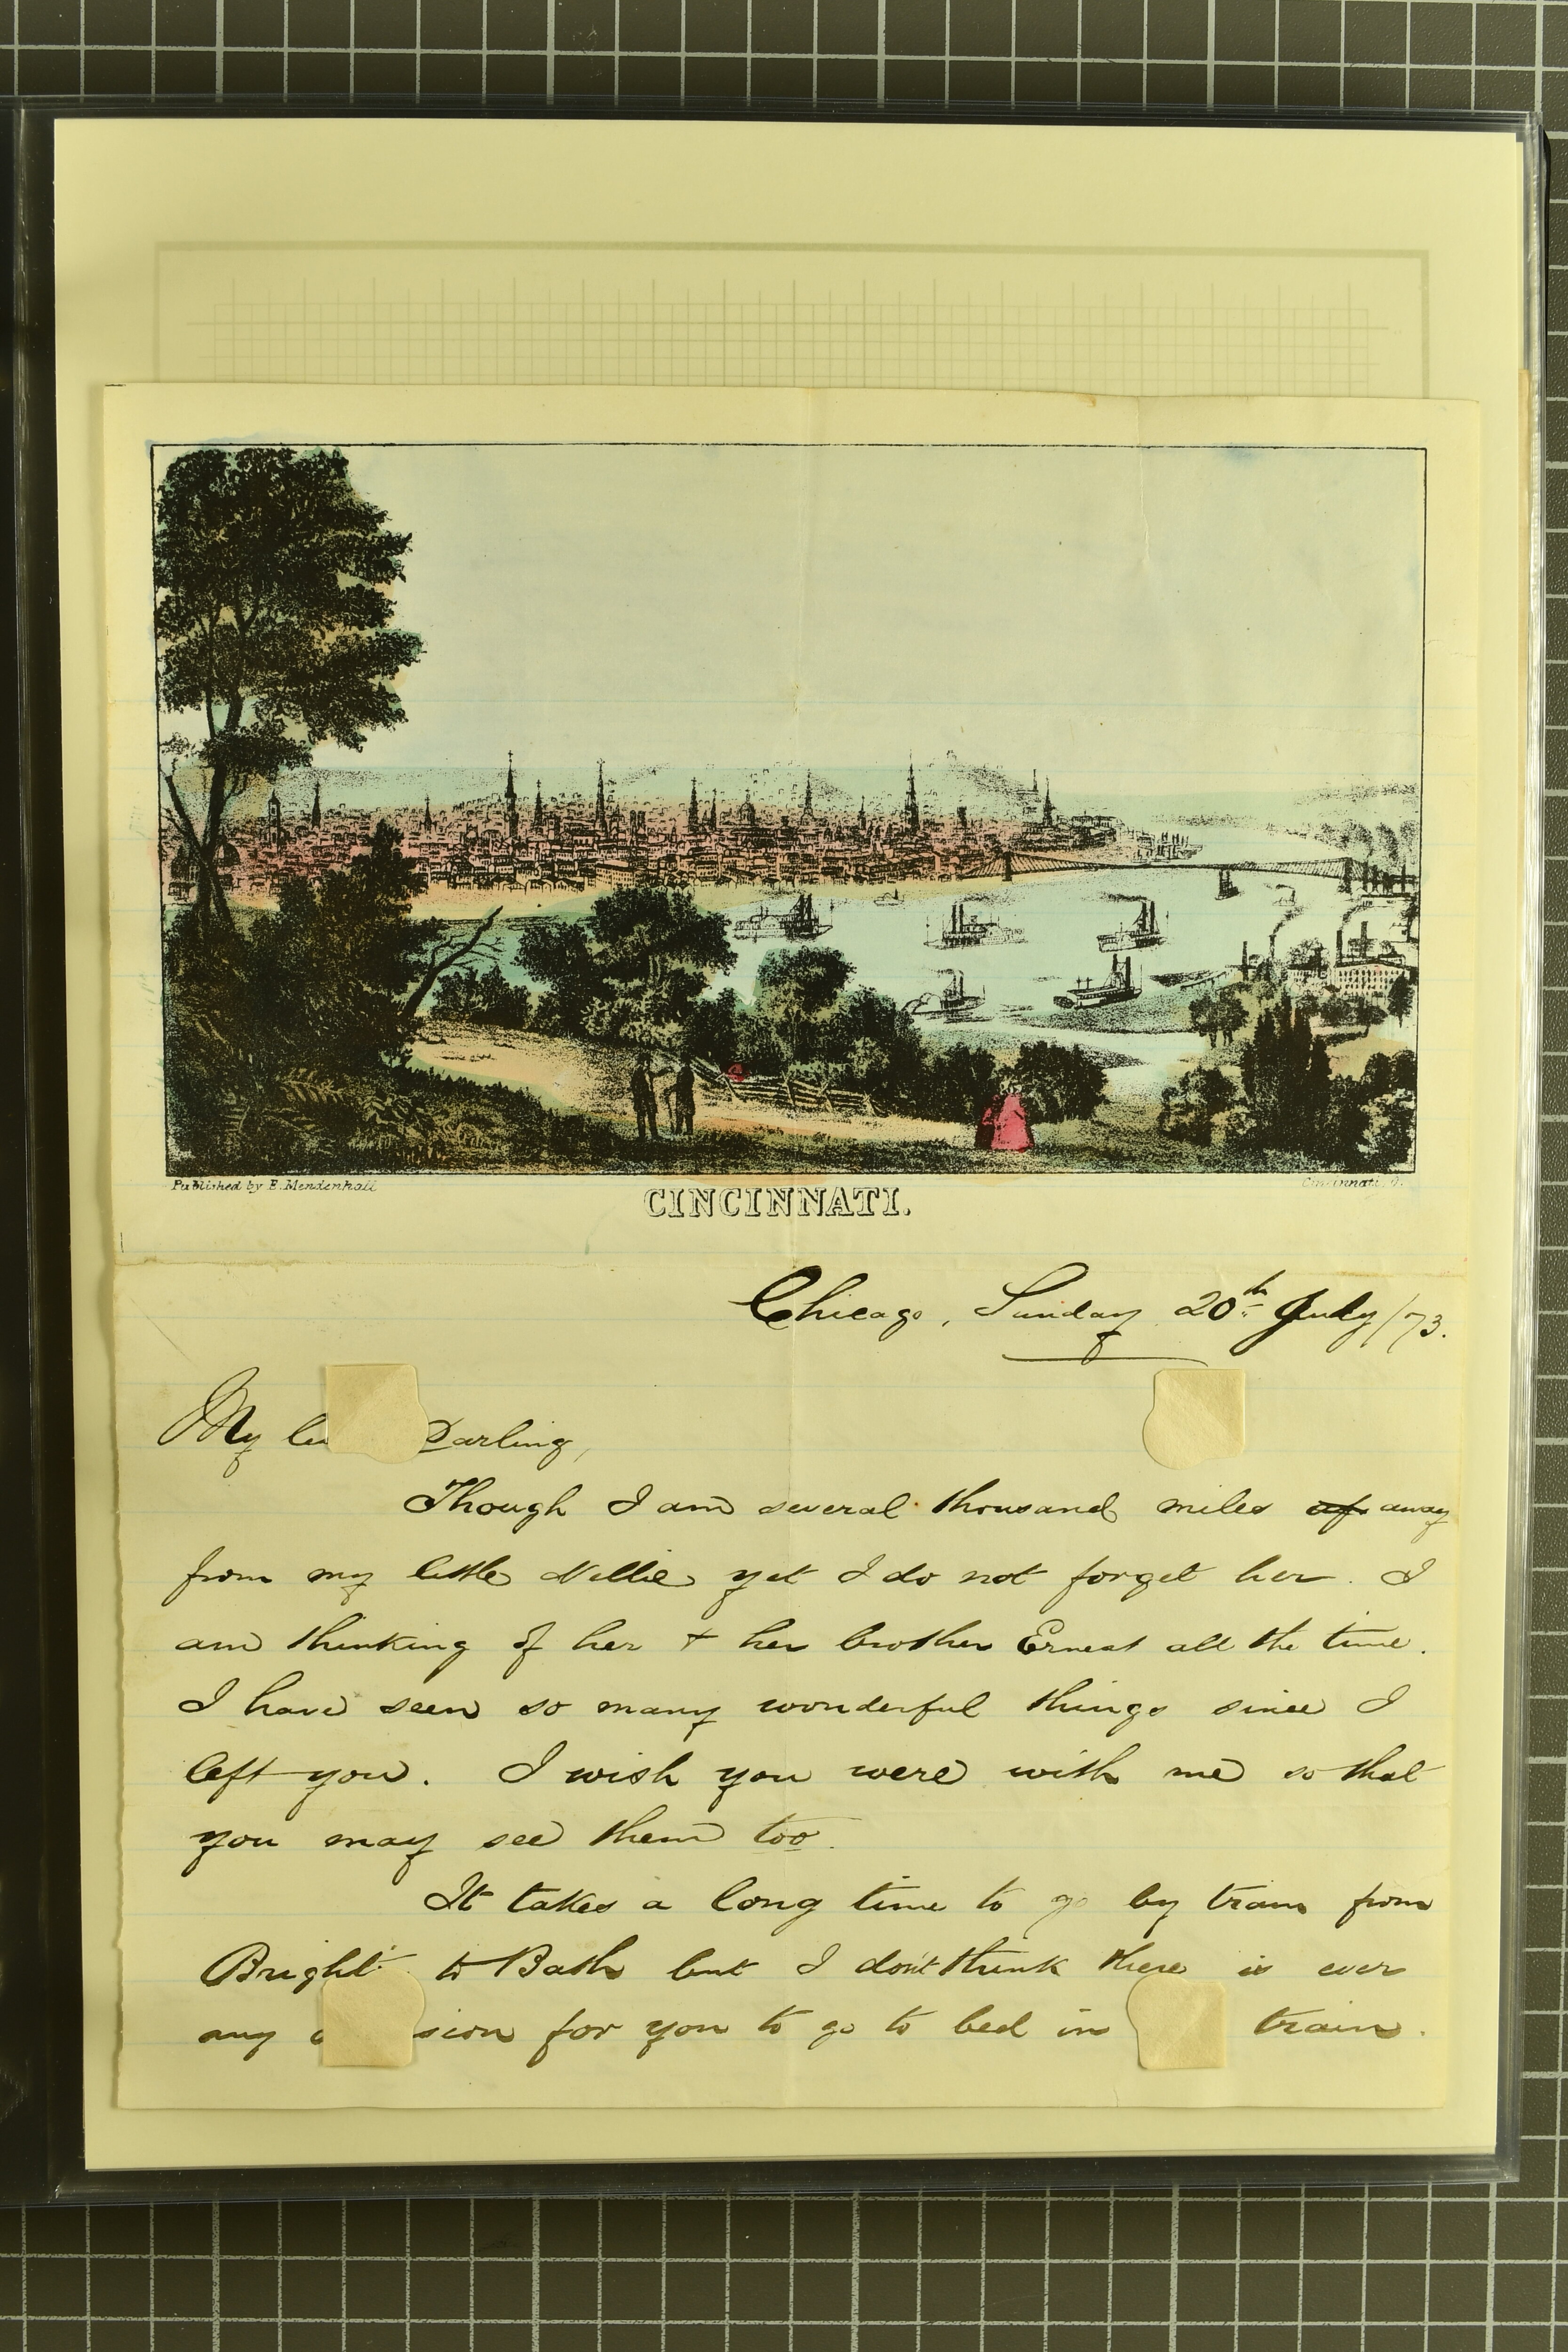 Published by E. Mendenhall
Cincinnati, O.
CINCINNATI.
Chicago, Sunday 20th July /73.
My Darling,
Though I am several thousand miles away
from my little Nellie yet I do not forget her. I
am thinking of her + her brother Ernest all the time.
I have seen so many wonderful things since I
left you. I wish you were with me so that
you may see them too.
It takes a long time to go by train from
Bright to Bath but I don't think there is ever
any sion for you to go to bed in train.